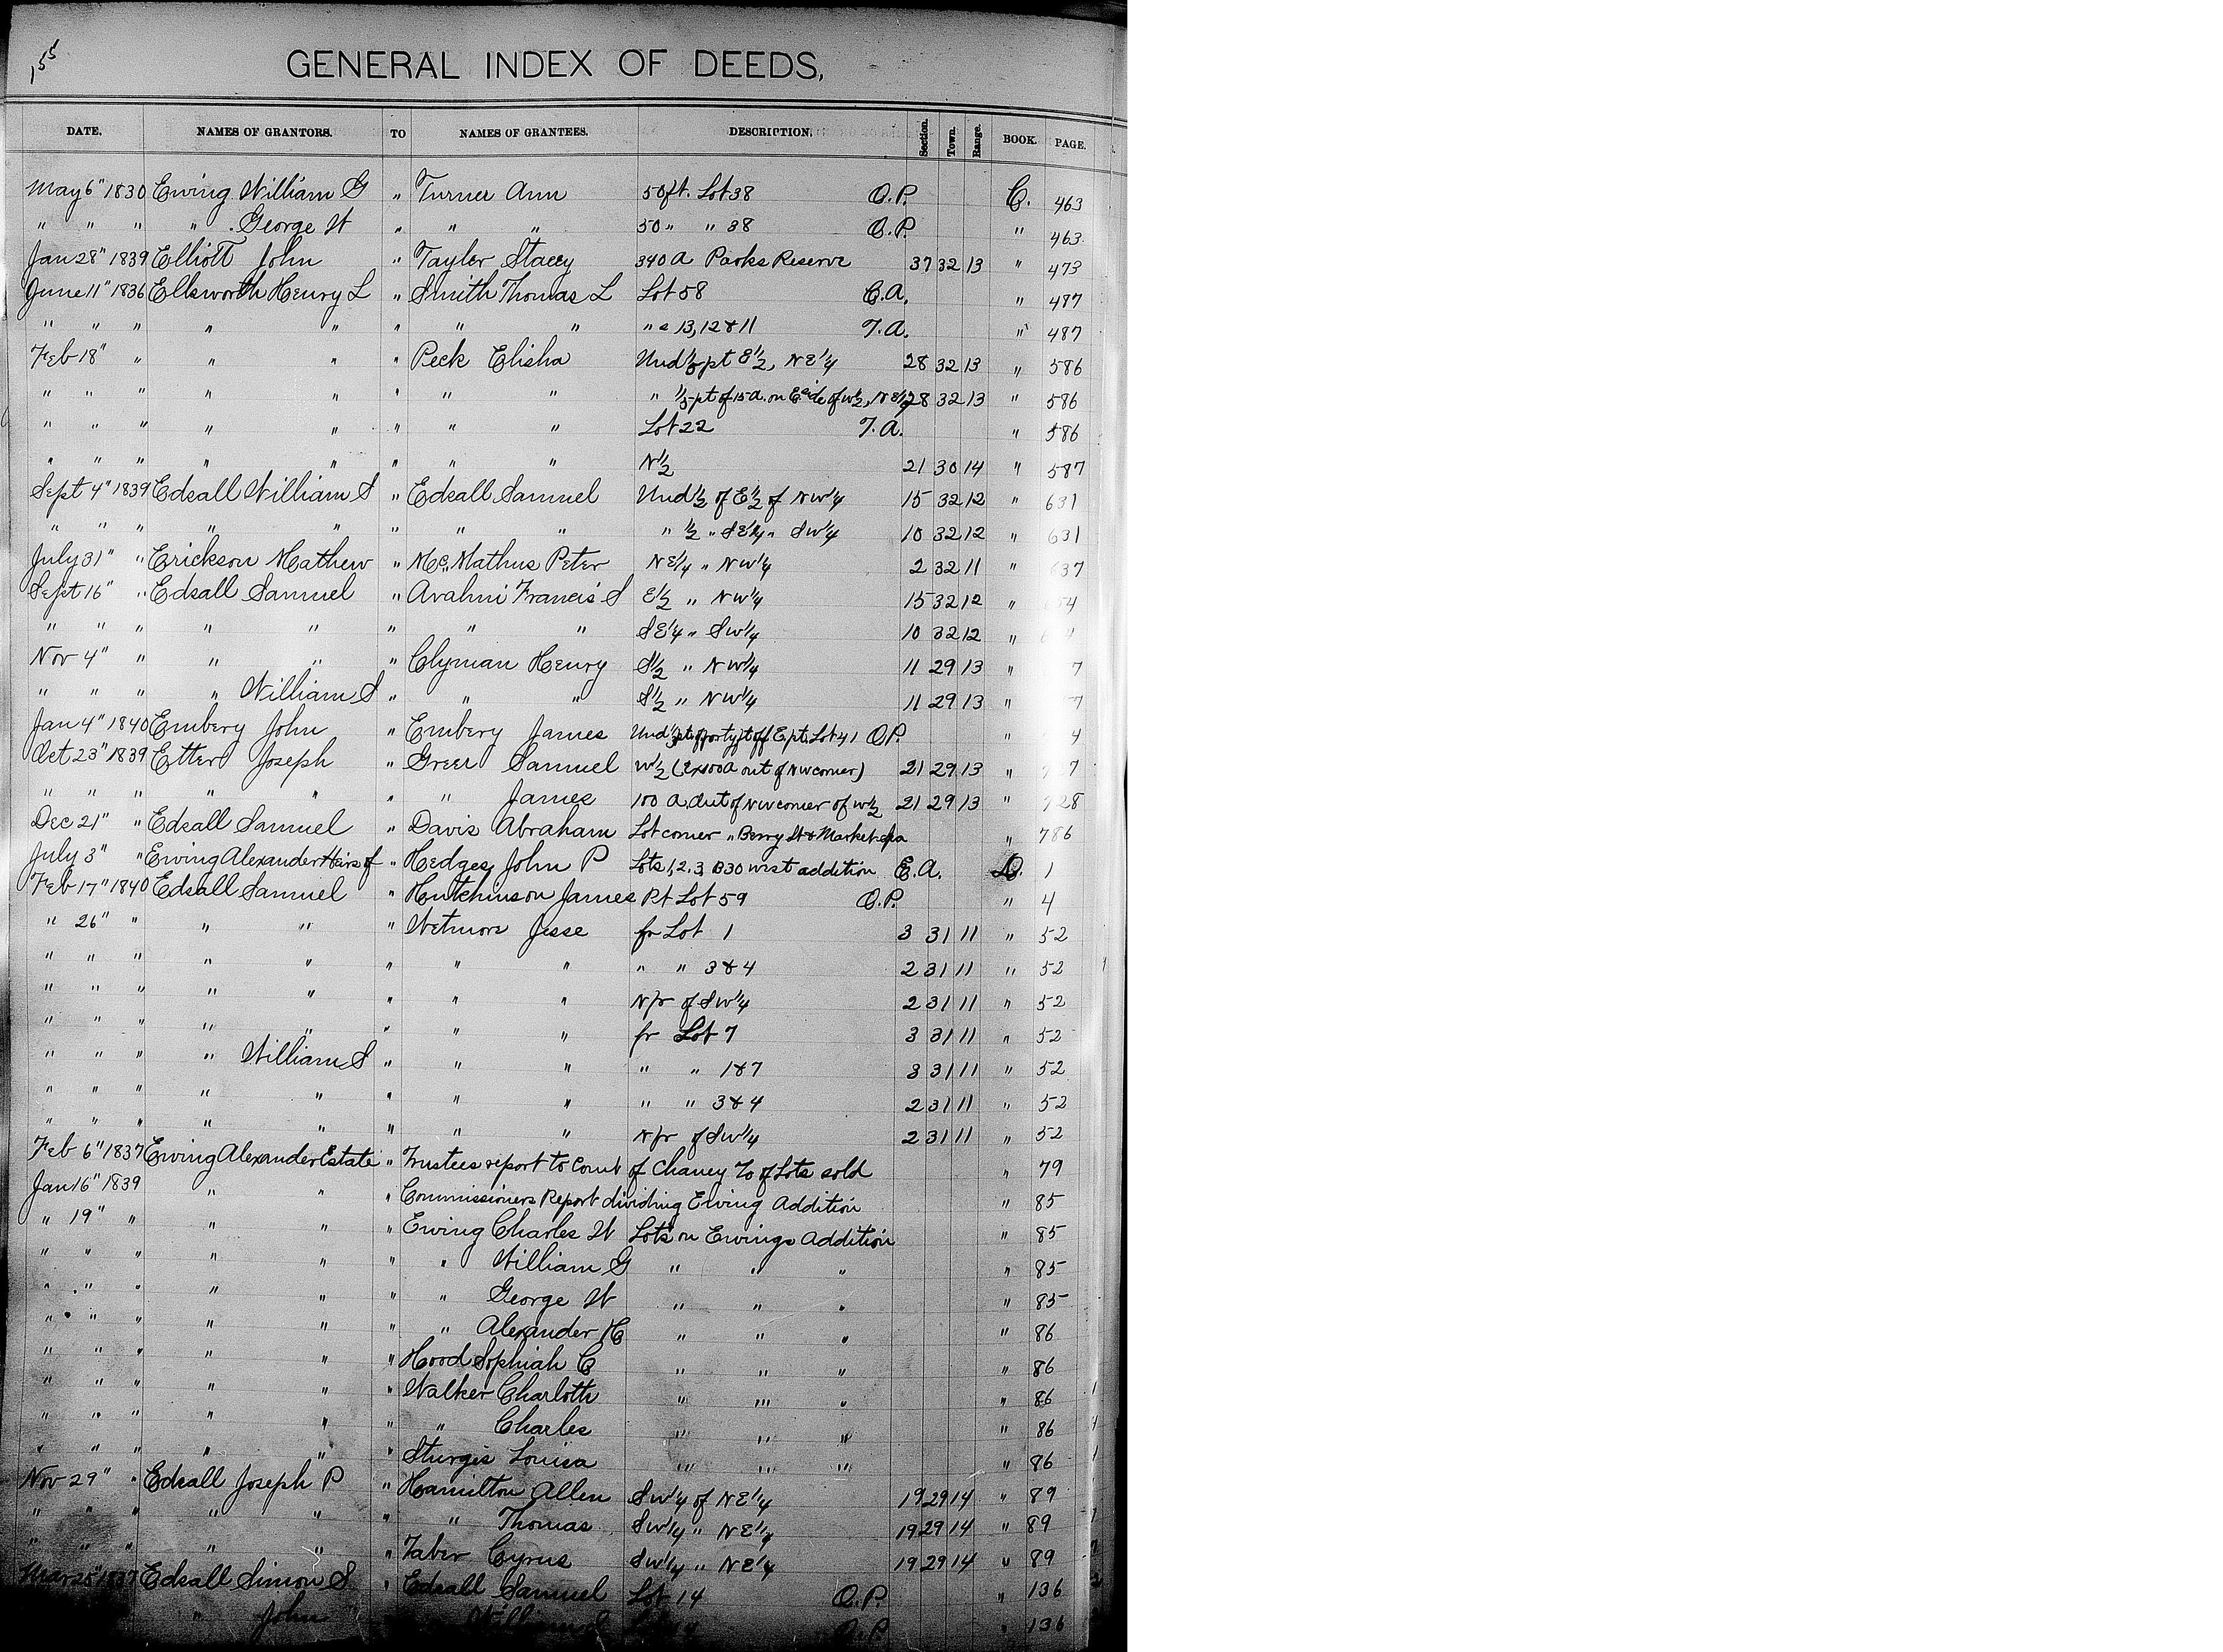 155
GENERAL INDEX OF DEEDS.
DATE. NAMES OF GRANTORS. TO NAMES OF GRANTEES. DESCRIPTION. Section. Town. Range. BOOK. PAGE.
May 6" 1830 Ewing William G " Turner Ann 50ft. Lot 38 O.P. C. 463
" " " " George W " " " 50 " " 38 O.P. " 463
Jan 28" 1839 Elliott John " Tayler Stacey 340 A Parks Reserve 37 32 13 " 473
June 11" 1836 Ellsworth Henry L " Smith Thomas L Lot 58 C.A. " 487
" " " " " " " " " " 13, 12 & 11 T.A. " 487
Feb 18" " " " " Peck Elisha Und 1/3 pt E 1/2, NE 1/4 28 32 13 " 586
" " " " " " " " " 1/3 pt of 15 A. on E side of W 1/2, NE 1/4 28 32 13 " 586
" " " " " " " " Lot 22 T.A. " 586
" " " " " " " " N 1/2 21 30 14 " 587
Sept 4" 1839 Edsall William S " Edsall Samuel Und 1/2 of E 1/2 of NW 1/4 15 32 12 " 631
" " " " " " " " " 1/2 " SE 1/4 " SW 1/4 10 32 12 " 631
July 31" " Erickson Mathew " Mc.Mathus Peter NE 1/4 " NW 1/4 2 32 11 " 637
Sept 16" " Edsall Samuel " Avahni Francis S E 1/2 " NW 1/4 15 32 12 "
" " " " " " " " SE 1/4 " SW 1/4 10 32 12 "
Nov 4" " " " " Clyman Henry S 1/2 " NW 1/4 11 29 13 " 7
" " " " William S " " " S 1/2 " NW 1/4 11 29 13 " 7
Jan 4" 1840 Embery John " Embery James Und pt of Ept. Lot 41 O.P. " 4
Oct 23" 1839 Etter Joseph " Greer Samuel W 1/2 (Ex 100 A out of NW corner) 21 29 13 "
" " " " " " " James 100 A. out of NW corner of W 1/2 21 29 13 " 728
Dec 21" " Edsall Samuel " Davis Abraham Lot corner " Berry St & Market " 786
July 3" " Ewing Alexander Heirs of " Hedges John P Lots 1, 2, 3, B 30 west addition E.A. D. 1
Feb 17" 1840 Edsall Samuel " Hutchinson James Pt Lot 59 O.P. " 4
" 26" " " " " Wetmore Jesse fr Lot 1 3 31 11 " 52
" " " " " " " " " " 3 & 4 2 31 11 " 52
" " " " " " " " N fr of SW 1/4 2 31 11 " 52
" " " " " " " " fr Lot 7 3 31 11 " 52
" " " " William S " " " " " 1 & 7 3 31 11 " 52
" " " " " " " " " " 3 & 4 2 31 11 " 52
" " " " " " " " N fr of SW 1/4 2 31 11 " 52
Feb 6" 1837 Ewing Alexander Estate " Trustees report to Court of Chancy of Lots sold " 79
Jan 16" 1839 " " " Commissioners Report dividing Ewing Addition " 85
" 19" " " " " Ewing Charles W Lots on Ewings Addition " 85
" " " " " " " William G " " " " 85
" " " " " " " George W " " " " 85
" " " " " " " Alexander H " " " " 86
" " " " " " Hood Sophiah C " " " " 86
" " " " " " Walker Charloth " " " " 86
" " " " " " " Charles " " " " 86
" " " " " " Sturgis Louisa " " " " 86
Nov 29" " Edsall Joseph P " Hamilton Allen SW 1/4 of NE 1/4 19 29 14 " 89
" " " " " " " Thomas SW 1/4 " NE 1/4 19 29 14 " 89
" " " " " " Taber Cyrus SW 1/4 " NE 1/4 19 29 14 " 89
Mar 25" 1837 Edsall Simon S " Edsall Samuel Lot 14 O.P. " 136
" John " William S O.P. " 136